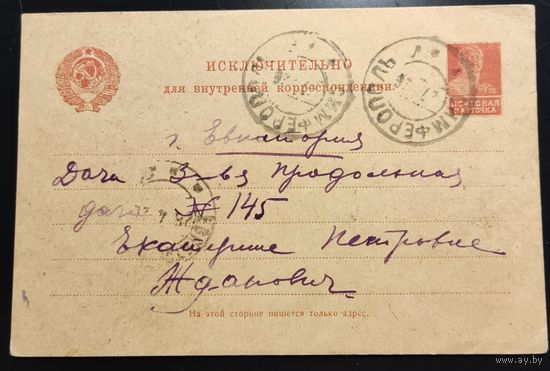 ИСКЛЮЧИТЕЛЬНО
для внутренней корреспонденции.
СИМФЕРОПОЛЬ
СИМФЕРОПОЛЬ
ПОЧТОВАЯ
КАРТОЧКА
г. Евпатория
Дачи 3-ья Продольная
дача № 145
Екатерине Петровне
Жданович.
На этой стороне пишется только адрес.
www.ay.by